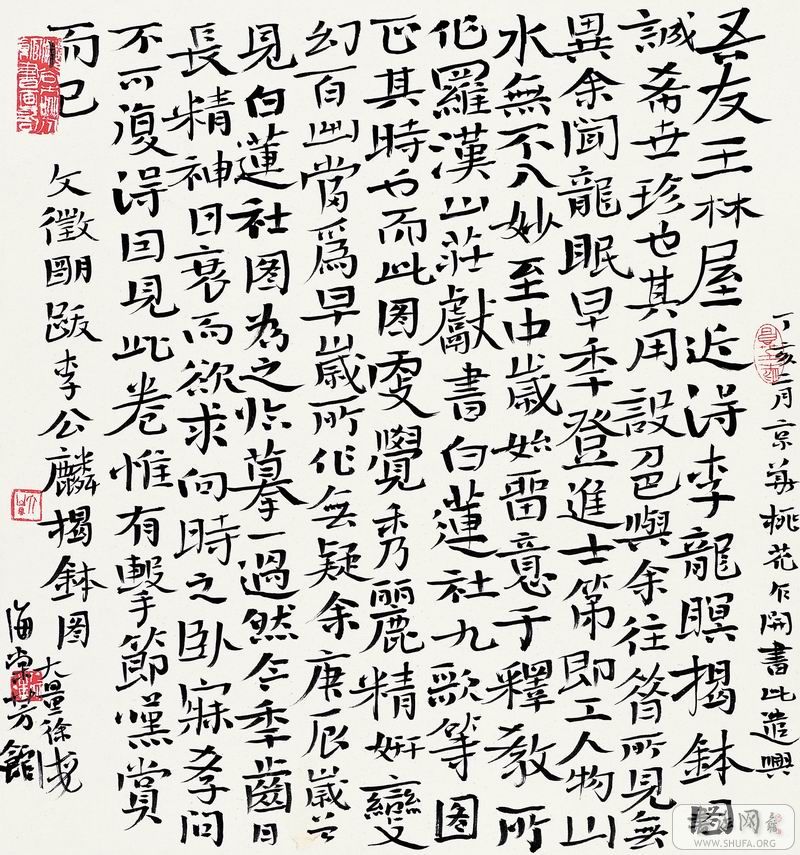 丁亥二月京華桃花乍開書此遣興
吾友王林屋近得李龍瞑揭鉢图
誠希世珍也其用設色與余往昔所見無
異余聞龍眠早季登進士第即工人物山
水無不入妙至中歲始留意于釋教所
作羅漢山莊獻書白蓮社九歌等图
正其時也而此图更覺秀麗精妍變
幻百出當爲早歲所作無疑余庚辰歲嘗
見白蓮社图為之临摹一過然今季齒日
長精神日衰而欲求向時之卧寐孝問
不可復得因見此卷惟有擊節嘆賞
而已
文徵明跋李公麟揭鉢图
大量徐
海棠方館
WWW.SHUFA.ORG